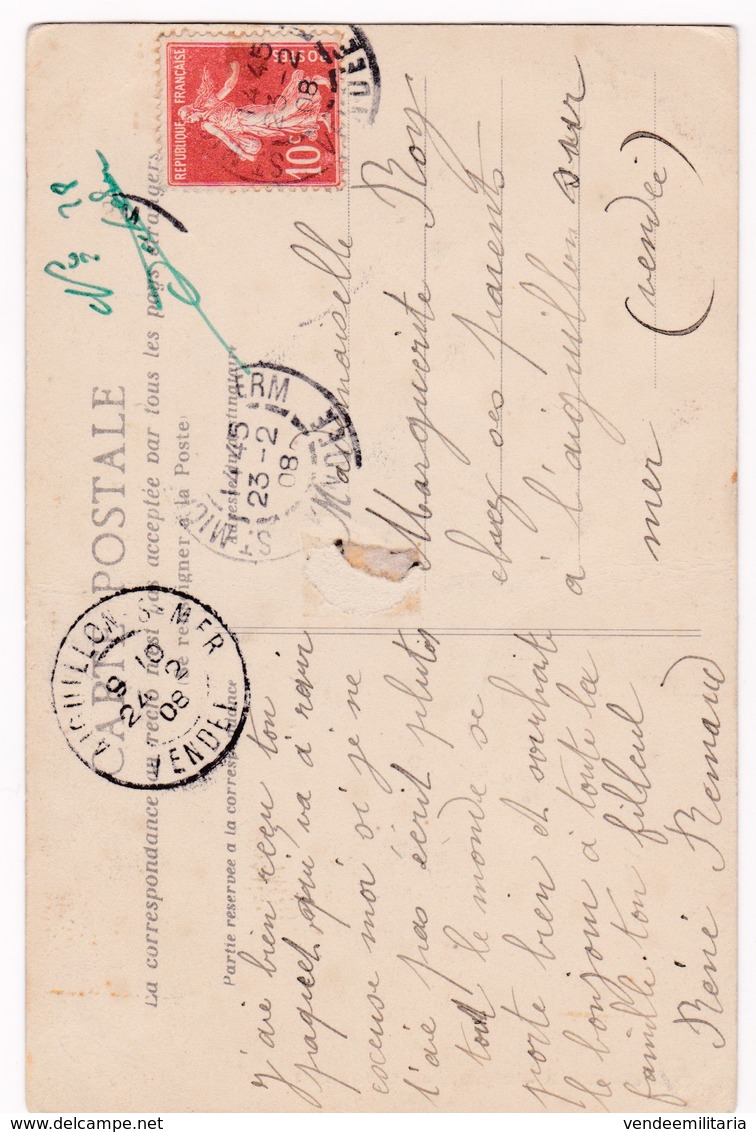 CARTE POSTALE
La correspondance au recto n'est pas acceptée par tous les pays étrangers
(Se renseigner à la Poste)
Partie réservée à la correspondance
J'aie bien reçu ton
paquet, qui va à ravir
excuse moi si je ne
t'aie pas écrit plutôt
tout le monde se
porte bien et souhaite
le bonjour à toute la
famille ton filleul
René Renaud
Mademoiselle
Marguerite Roy
chez ses parents
à l'aiguillon sur
mer (vendée)
REPUBLIQUE FRANÇAISE
POSTES
10c
14 45
23-2
08
VENDEE
ERM
45
23-2
08
AIGUILLON-S-MER
9 10
24 2
08
VENDEE
vendeemilitaria